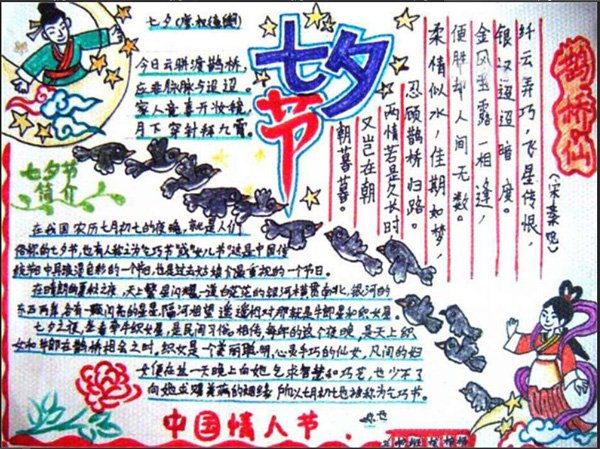 七夕(唐·权德舆)
今日云骈渡鹊桥,
应非脉脉与迢迢。
家人竞喜开妆镜,
月下穿针拜九霄。
七夕节
鹊桥仙
(宋·秦观)
纤云弄巧,飞星传恨,
银汉迢迢暗度。
金风玉露一相逢,
便胜却人间无数。
柔情似水,佳期如梦,
忍顾鹊桥归路。
两情若是久长时,
又岂在朝
朝暮暮。
七夕节
简介
在我国,农历七月初七的夜晚,就是人们
俗称的七夕节,也有人称之为“乞巧节”或“女儿节”这是中国传
统节日中最具浪漫色彩的一个节日,也是过去姑娘们最重视的一个节日。
在晴朗的夏秋之夜,天上繁星闪耀,一道白茫茫的银河横贯南北,银河的
东西两岸,各有一颗闪亮的星星,隔河相望,遥遥相对,那就是牛郎星和织女星。
七夕之夜,坐看牵牛织女星,是民间习俗。相传,每年的这个夜晚,是天上织
女和牛郎在鹊桥相会之时。织女是一个美丽聪明、心灵手巧的仙女,凡间的妇
女便在这一天晚上向她乞求智慧和巧艺,也少不了
向她求赐美满的姻缘,所以七月初七也被称为乞巧节。
中国情人节.